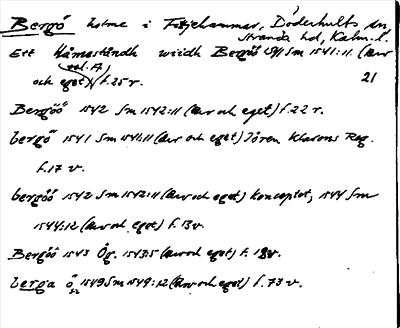 Bergö holme i Fittjehammar, Döderhults sn
Stranda hd, Kalm. l.
Ett Håmaständh wiidh Bergöö 1541 Sm 1541:11 (Arv
vol. A)
och eget) f. 25 r. 21
Bergöö 1542 Sm 1542:11 (Arv och eget) f. 22 r.
bergö 1541 Sm 1541:11 (Arv och eget) Jören Klarons Reg.
f. 17 v.
bergöö 1542 Sm 1542:11 (Arv och eget) konceptet, 1544 Sm
1544:12 (Arv och eget) f. 13 v.
Bergöö 1543 Ög. 1543:5 (Arv och eget) f. 18 v.
berga ö 1549 Sm 1549:12 (Arv och eget) f. 73 v.